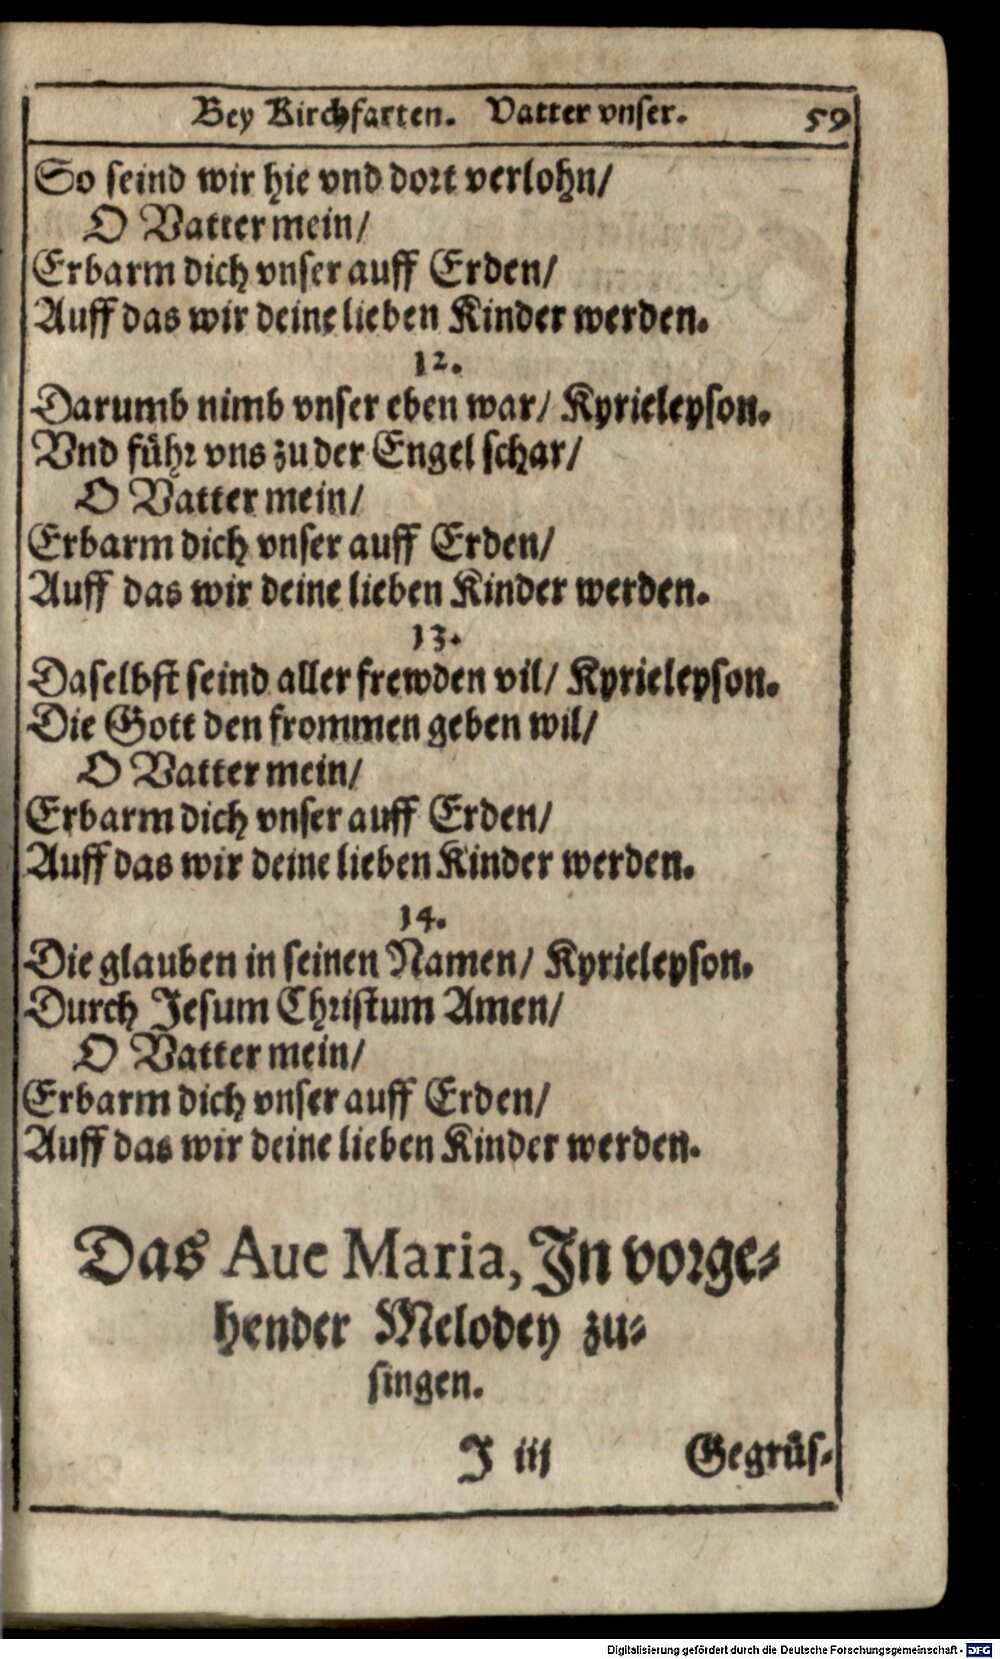 Bey Kirchfarten. Vatter vnser. 59
So seind wir hie vnd dort verlohn/
O Vatter mein/
Erbarm dich vnser auff Erden/
Auff das wir deine lieben Kinder werden.
12.
Darumb nimb vnser eben war/ Kyrieleyson.
Vnd führ vns zu der Engel schar/
O Vatter mein/
Erbarm dich vnser auff Erden/
Auff das wir deine lieben Kinder werden.
13.
Daselbst seind aller frewden vil/ Kyrieleyson.
Die Gott den frommen geben wil/
O Vatter mein/
Erbarm dich vnser auff Erden/
Auff das wir deine lieben Kinder werden.
14.
Die glauben in seinen Namen/ Kyrieleyson.
Durch Jesum Christum Amen/
O Vatter mein/
Erbarm dich vnser auff Erden/
Auff das wir deine lieben Kinder werden.
Das Aue Maria, Jn vorge-
hender Melodey zu-
singen.
J iij Gegrüs-
Digitalisierung gefördert durch die Deutsche Forschungsgemeinschaft - DFG